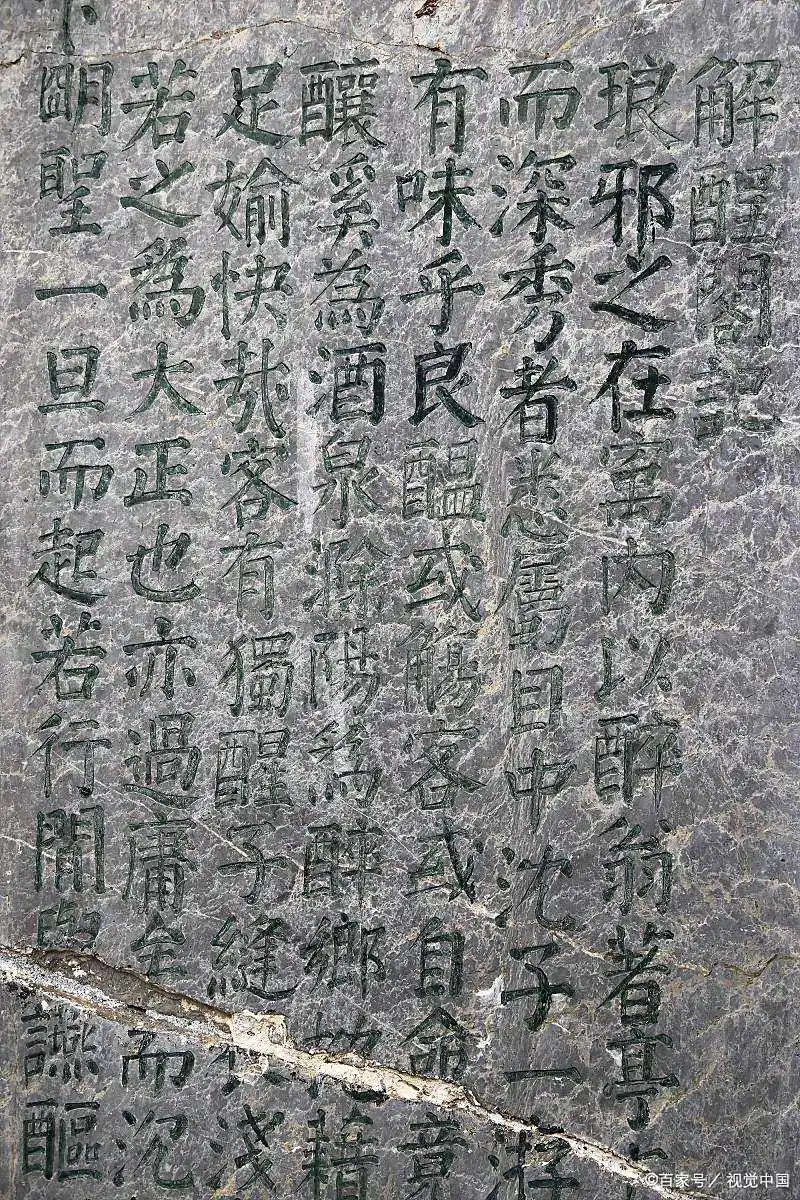 解酲閣記
琅邪之在寓內以醉翁著亭
而深秀者悉屬目中沈子一游
有味乎良醖或觴客或自命竟
釀溪為酒泉滁陽為醉鄉枕藉
足媮快哉客有獨醒子縫淺
若之為大正也亦過庸而沉
明聖一旦而起若行閒讌醧
©百家号／视觉中国